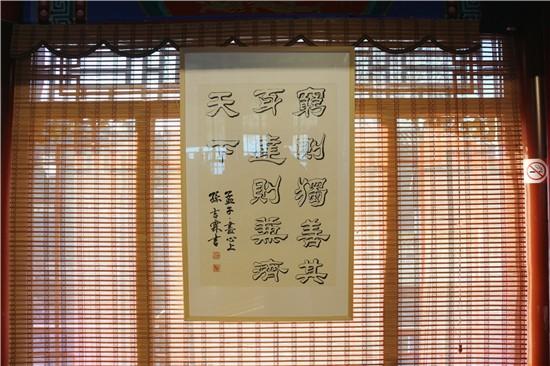 窮則獨善其
身達則兼濟
天下
孟子·盡心上
孫吉霖书